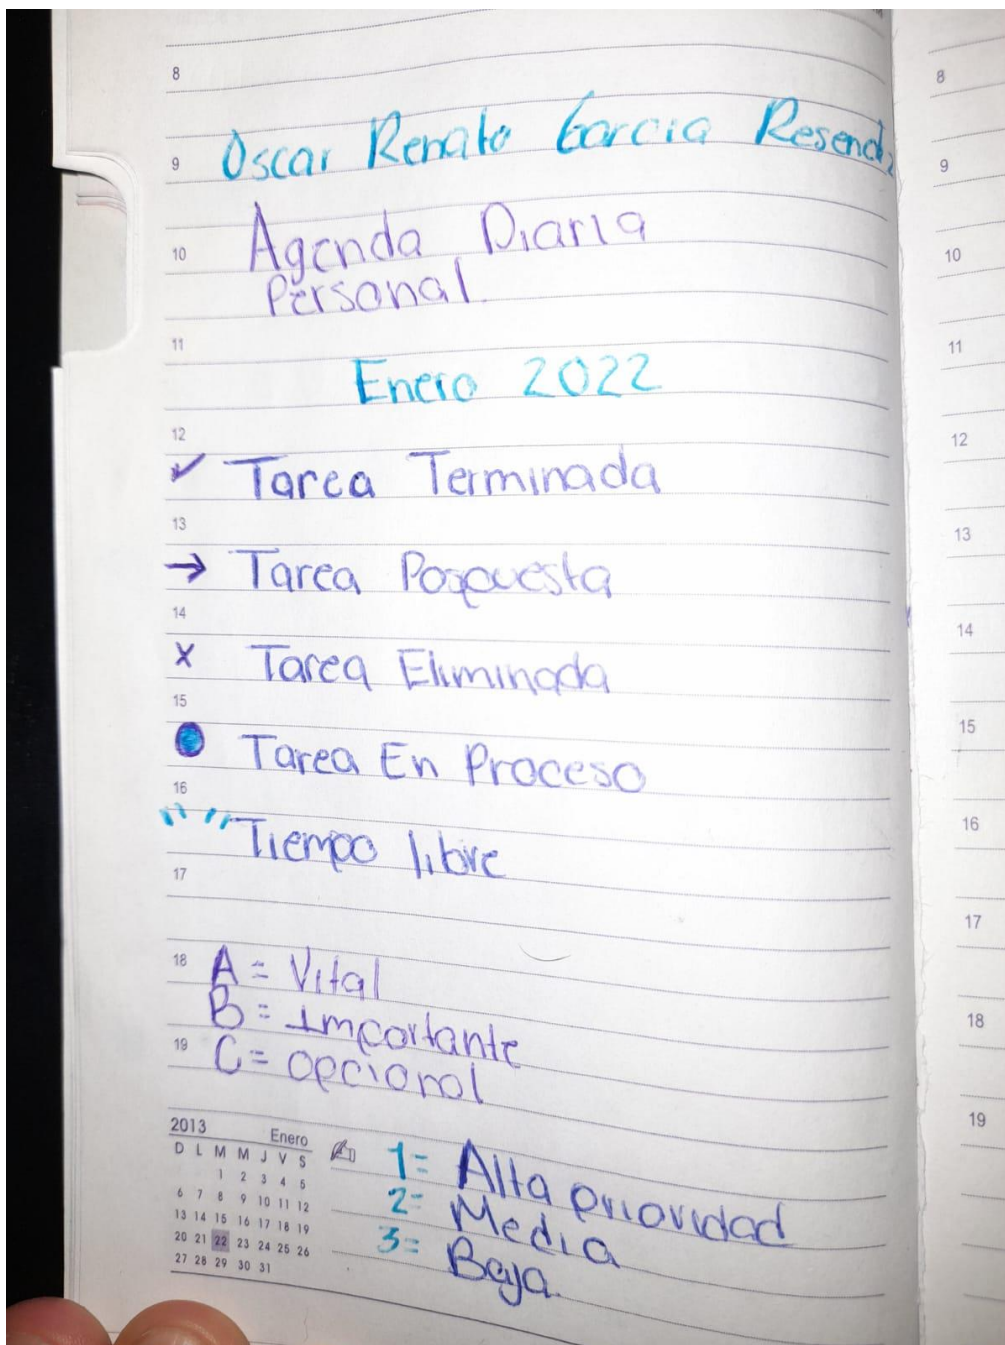 8
9 Oscar Renato Garcia Resend
10 Agenda Diaria
Personal.
11
Enero 2022
12
✓ Tarea Terminada
13
→ Tarea Pospuesta
14
x Tarea Eliminada
15
Tarea En Proceso
16
Tiempo libre
17
18 A = Vital
B = Importante
19 C = opcional
2013 Enero
D L M M J V S
1 2 3 4 5
6 7 8 9 10 11 12
13 14 15 16 17 18 19
20 21 22 23 24 25 26
27 28 29 30 31
1= Alta prioridad
2= Media
3= Baja.
8
9
10
11
12
13
14
15
16
17
18
19